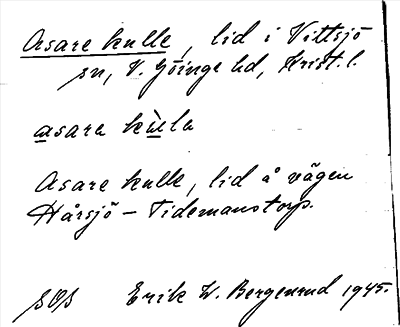 Asare kulle, lid i Vittsjö
sn, V. Göinge hd, Krist. l.
asara kùla
Asare kulle, lid å vägen
Hårsjö - Tidemanstorp.
SOS Erik W. Bergenrud 1945.